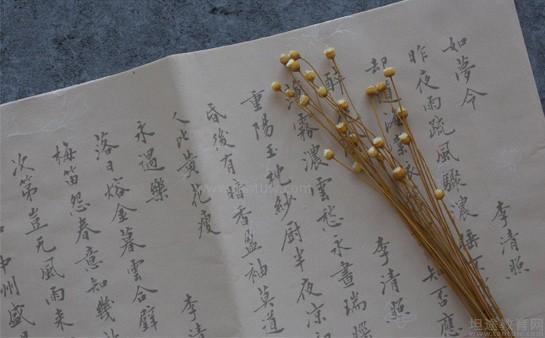 如夢令 李清照
昨夜雨疏風驟濃睡
却道海棠 知否應
醉 李清照
霧濃雲愁永晝瑞腦
重陽玉枕紗厨半夜涼初
昏後有暗香盈袖莫道
人比黃花瘦
永遇樂 李清
落日熔金暮雲合璧
梅笛怨春意知幾
次第豈无風雨来
中州盛日
坦途教育网